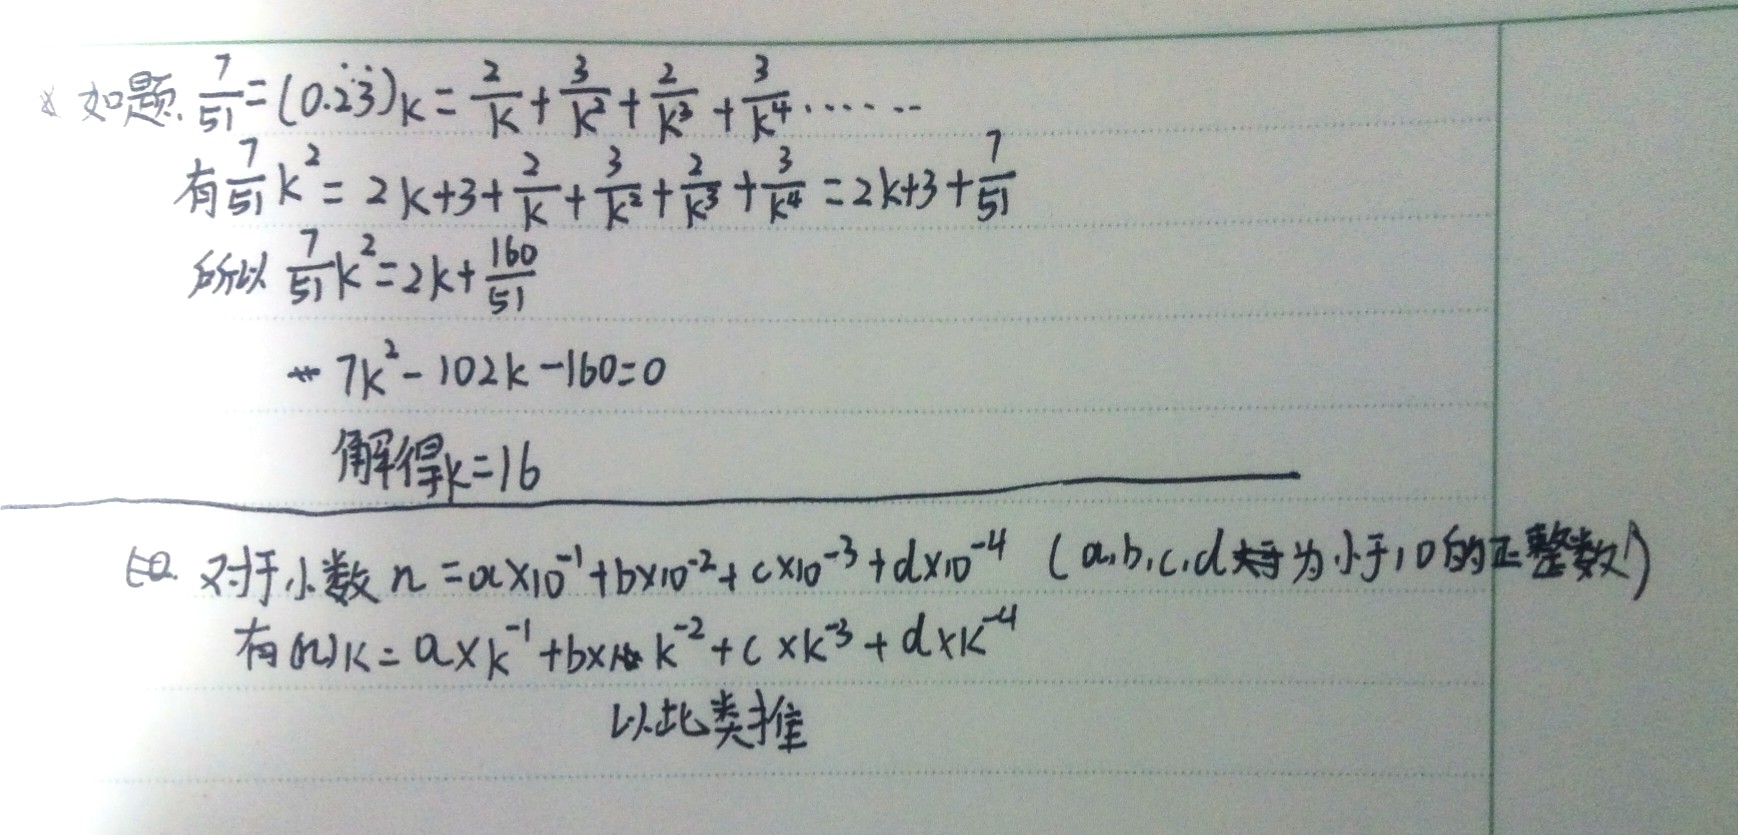 如题. 7/51 = (0.2̇3̇)k = 2/k + 3/k² + 2/k³ + 3/k⁴ ......
有 7/51 k² = 2k+3+ 2/k + 3/k² + 2/k³ + 3/k⁴ = 2k+3+ 7/51
所以 7/51 k² = 2k + 160/51
7k² - 102k - 160 = 0
解得k=16
对于小数 n = a×10⁻¹ + b×10⁻² + c×10⁻³ + d×10⁻⁴ (a,b,c,d 为小于10的正整数)
有(n)k = a×k⁻¹ + b×k⁻² + c×k⁻³ + d×k⁻⁴
以此类推